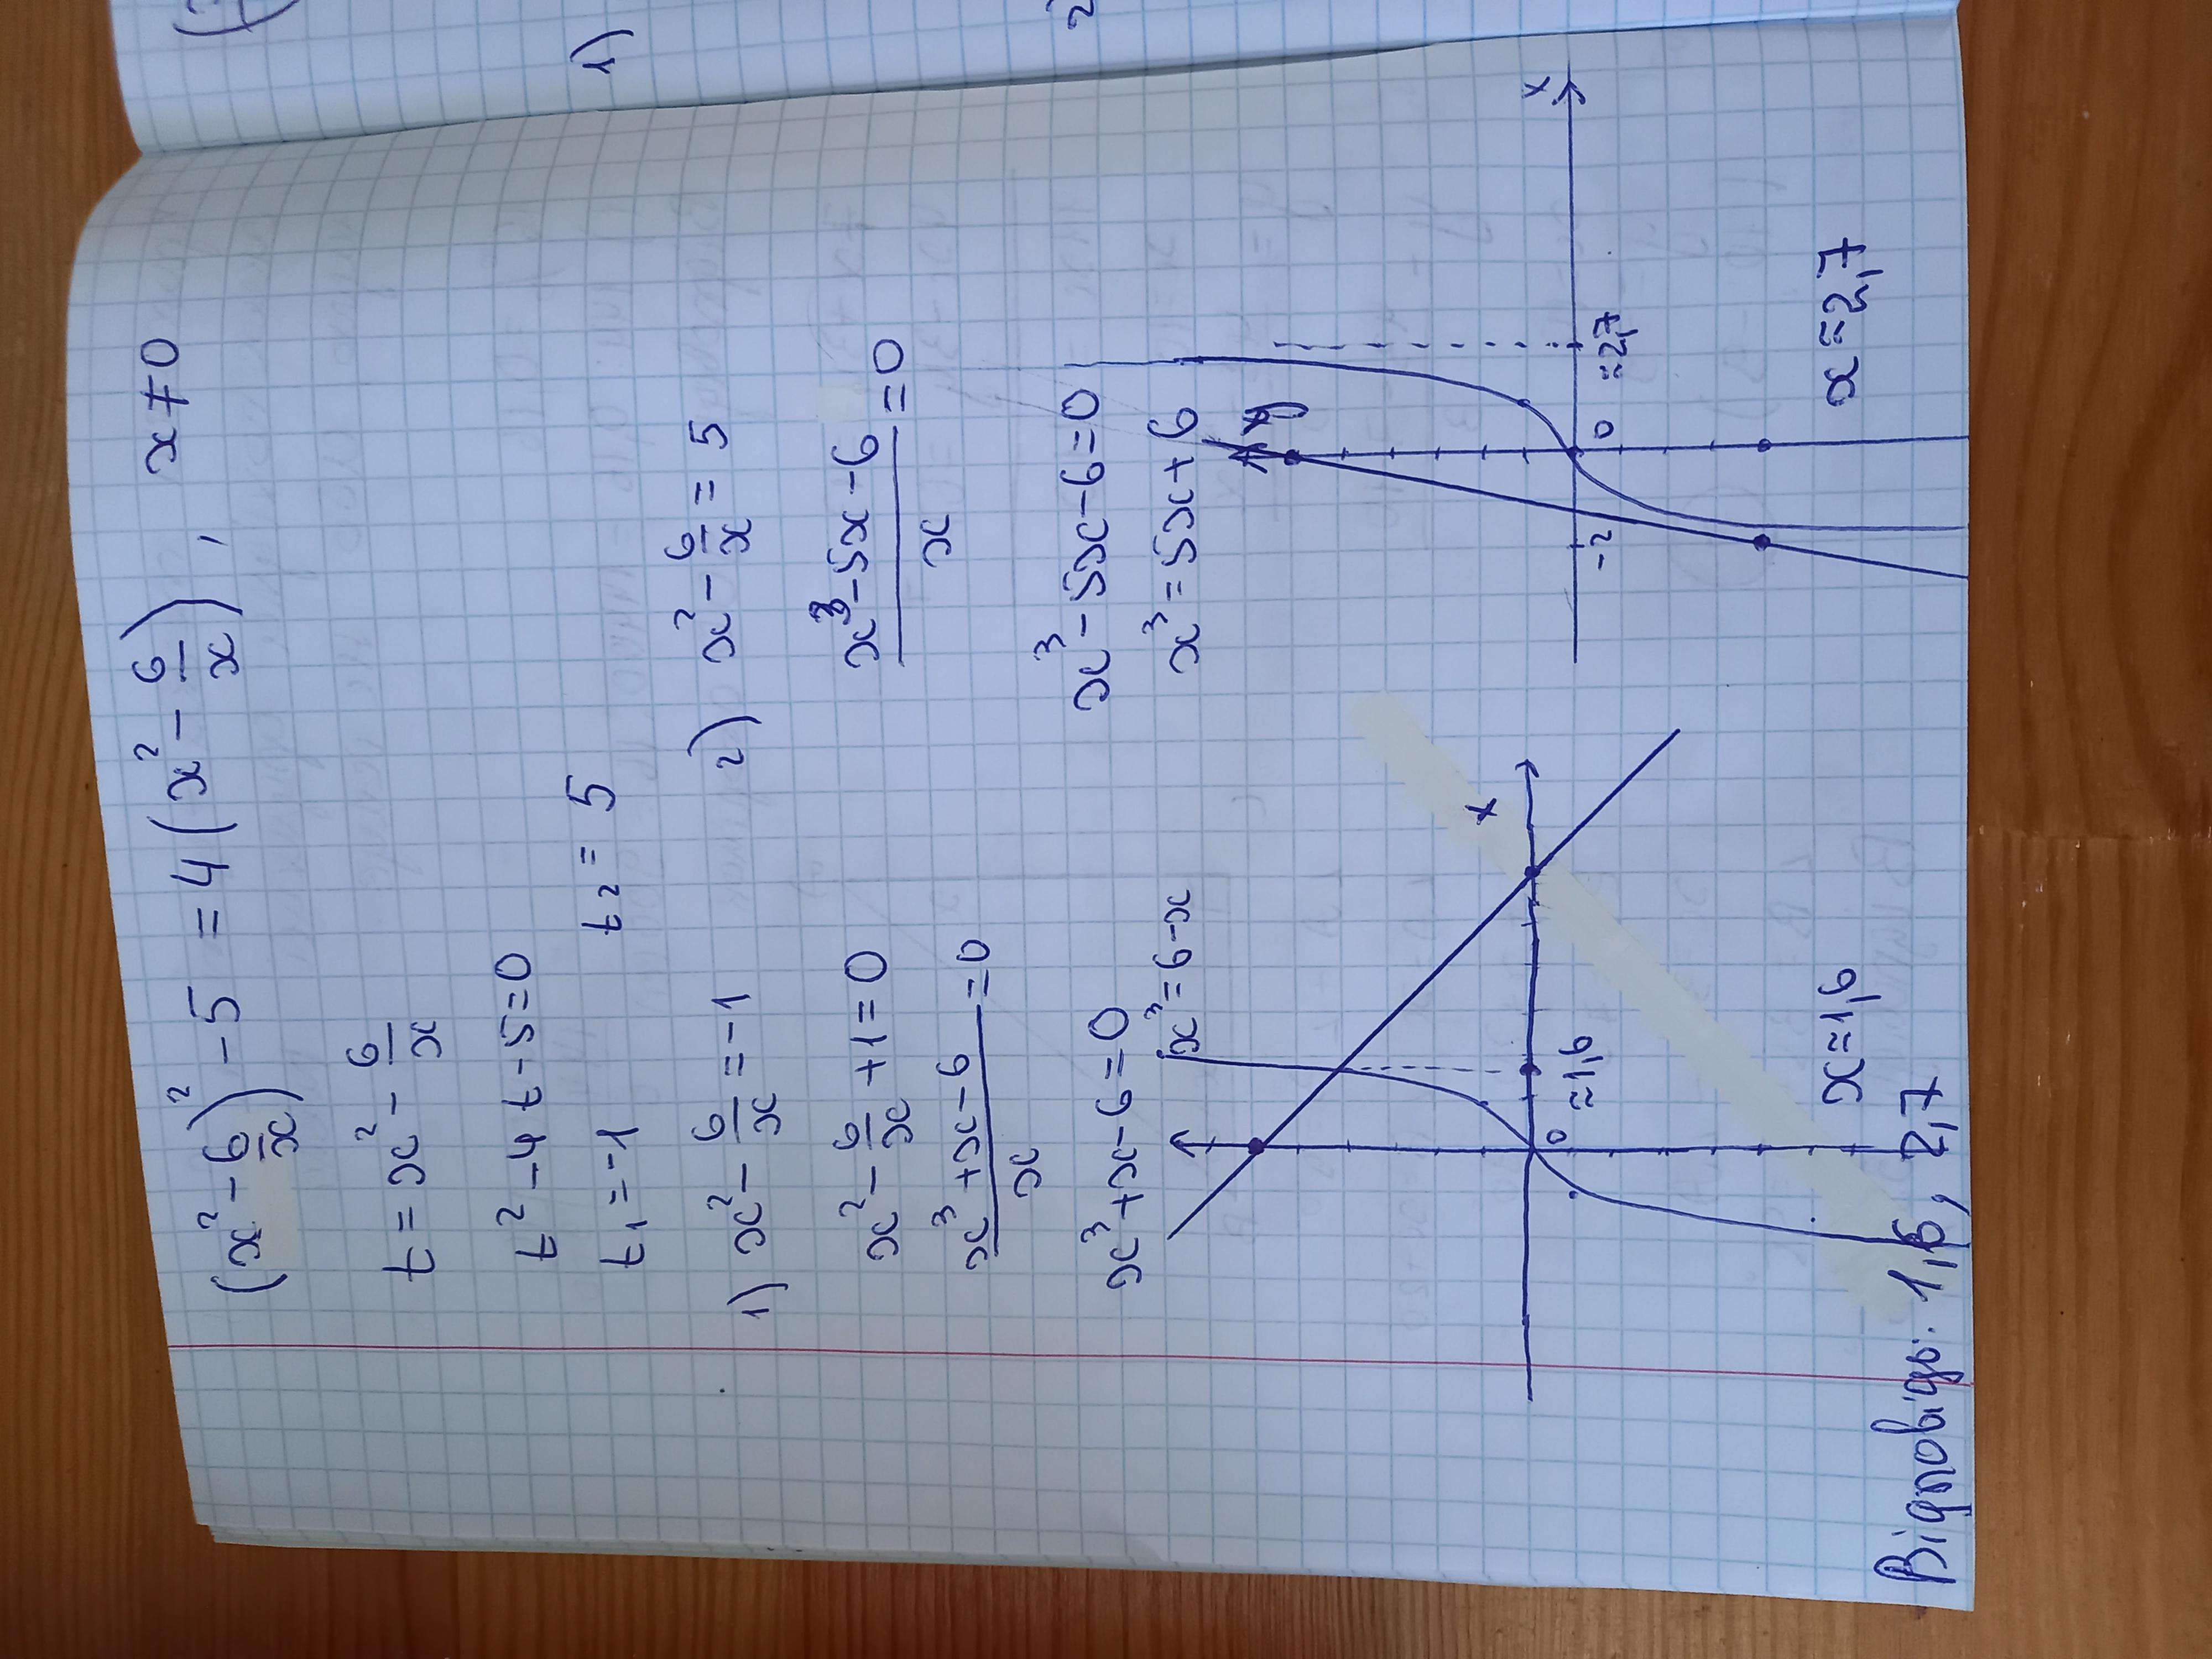 (x² - 6/x)² - 5 = 4(x² - 6/x), x ≠ 0
t = x² - 6/x
t² - 4t - 5 = 0
t₁ = -1 t₂ = 5
1) x² - 6/x = -1
x² - 6/x + 1 = 0
(x³ + x - 6)/x = 0
x³ + x - 6 = 0
x³ = 6 - x
x
0
≈1,6
x ≈ 1,6
2) x² - 6/x = 5
(x³ - 5x - 6)/x = 0
x³ - 5x - 6 = 0
x³ = 5x + 6
y
x
-2
0
≈2,7
x ≈ 2,7
Відповідь: 1,6, 2,7
1)